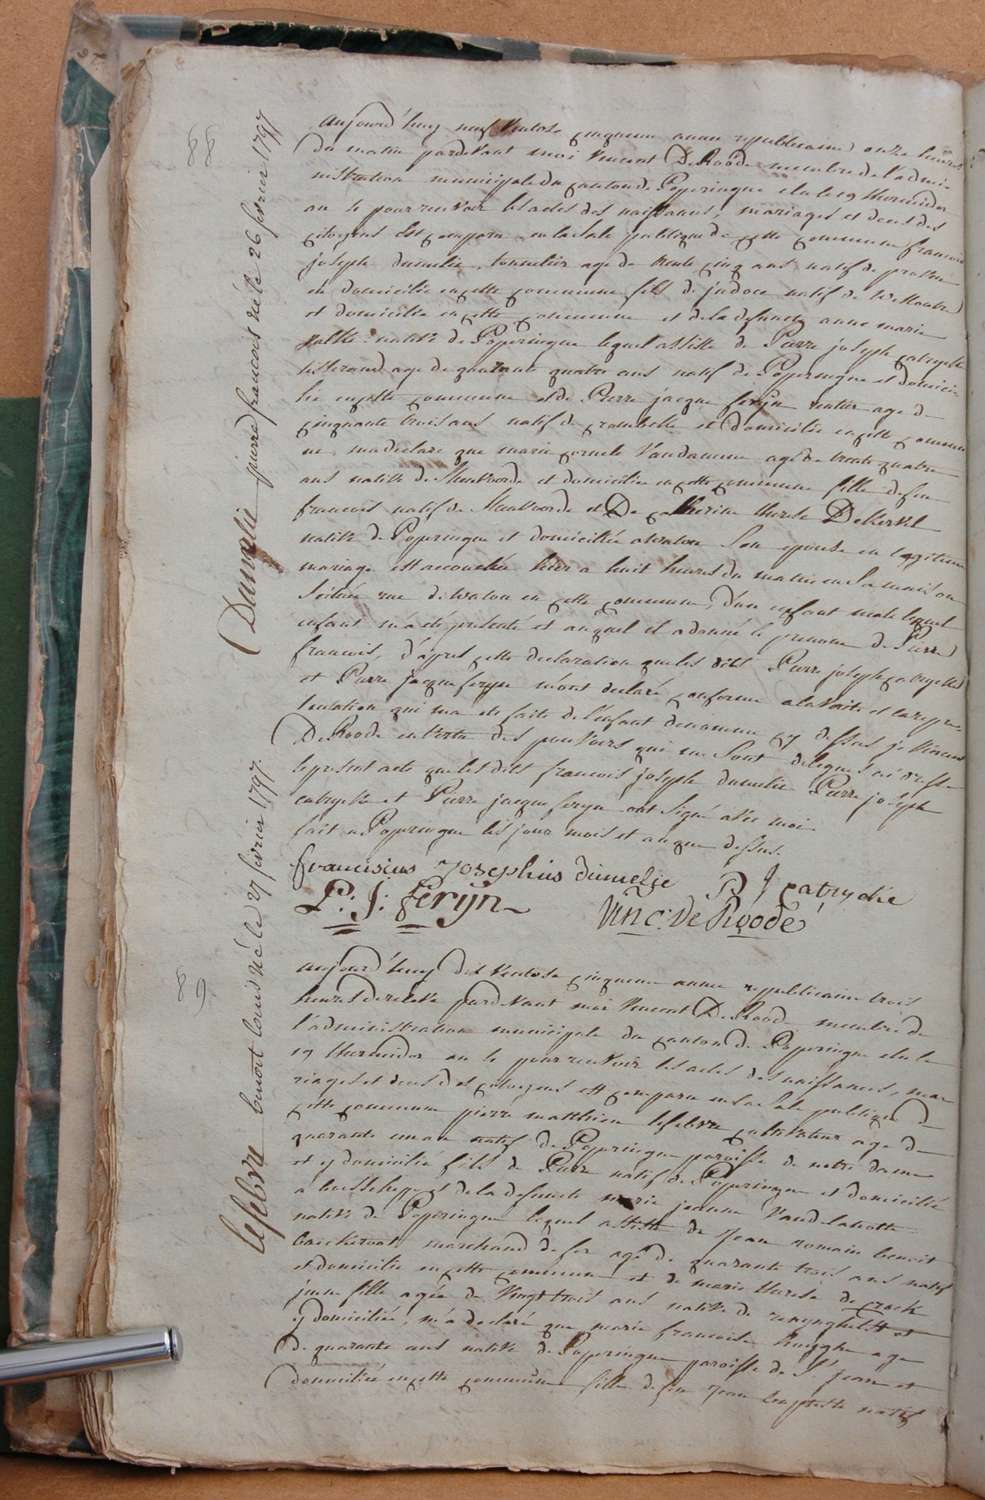 88
Dumelie pierre francois né le 26 fevrier 1797
aujourd'huy neuf Ventose cinquieme annee republicaine onze heures
du matin pardevant moi Vincent DeRoode membre de l'admi-
nistration municipale du canton de Poperingue elu le 19 thermidor
an 4e pour recevoir les actes des naissances, mariages et deces des
citoyens Est comparu en la sale publique de cette commune francois
joseph dumelie, tonnelier age de trente cinq ans natif de
en domicilié en cette commune fils de judoce natif de
et domicilié en cette commune et de la defuncte anne marie
native de Poperingue lequel assisté de Pierre joseph catryck
tisserand age de quarante quatre ans natif de Poperingue et domici-
lié en cette commune et de Pierre jacque feryn rentier age de
cinquante trois ans natif de crombeke et domicilié en cette commu
ne, m'a declaré que marie cornele Vandamme agée de trente quatre
ans native de Steenvoorde et domicilié en cette commune fille de feu
francois natif de Steenvoorde et De catherine therese DeKervel
native de Poperingue et domiciliée a watou son epouse en legitime
mariage est accouchée hier a huit heures du matin en sa maison
située rue de watou en cette commune, d'un enfant male lequel
enfant m'a eté presenté et auquel il a donné le prenom de Pierre
francois, d'apres cette declaration que les dits Pierre joseph catryck
et Pierre jacque feryn m'ont declaré conforme a la verité et la repre-
sentation qui m'a eté faite de l'enfant denommé cy dessus je Vincent
DeRoode en vertu des pouvoirs qui me sont delegues ai dressé
le present acte que les dits francois joseph dumelie Pierre joseph
catryck et Pierre jacque feryn ont signé avec moi
fait a Poperingue les jour mois et an que dessus.
franciscus Josephus dumelje P J catrycke
P: J: feryn Vinc: De Roode
89
lefebvre benoit louis né le 27 fevrier 1797
aujourd'huy dix Ventose cinquieme annee republicaine trois
heures de relevée pardevant moi Vincent DeRoode membre de
l'administration municipale du canton de Poperingue elu le
19 thermidor an 4e pour recevoir les actes des naissances, ma-
riages et deces des citoyens est comparu en la sale publique de
cette commune pierre matthieu lefebvre cultivateur age de
quarante un an natif de Poperingue paroisse de notre dame
et y domicilié fils de Pierre natif de Poperingue et domicilié
a busscheppe et de la defuncte marie jeanne Vandelanotte
native de Poperingue lequel assisté de Jean romain benoit
marchand de fer age de quarante trois ans natif
et domicilié en cette commune et de marie therese de crock
jeune fille agée de vingt trois ans native de renynghelst et
y domiciliée, m'a declaré que marie francoise age
de quarante ans native de Poperingue paroisse de St jean et
domiciliée en cette commune fille de feu Jean baptiste natif